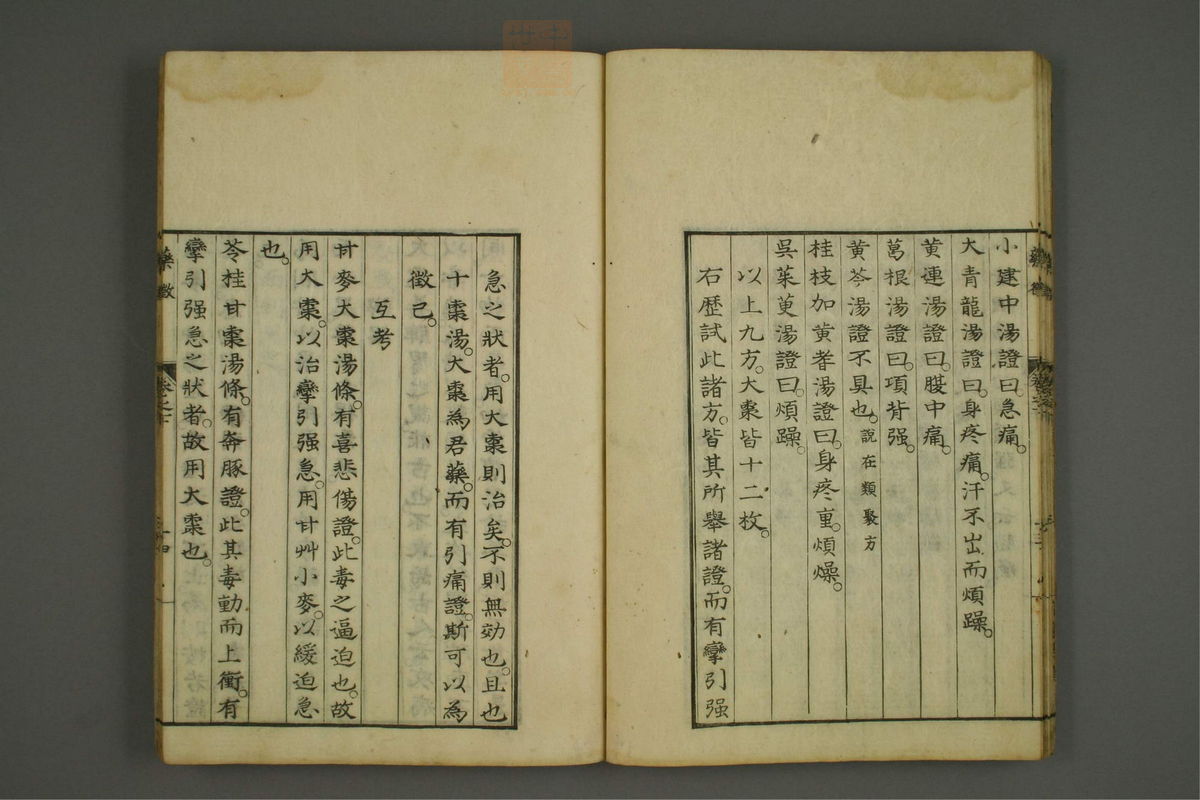 小建中湯證曰。急痛。
大青龍湯證曰。身疼痛。汗不出而煩躁。
黄連湯證曰。腹中痛。
葛根湯證曰。項背强。
黄芩湯證不具也。說在類聚方
桂枝加黄耆湯證曰。身疼重。煩燥。
吳茱萸湯證曰。煩躁。
以上九方。大棗皆十二枚。
右歷試此諸方。皆其所舉諸證。而有攣引强
急之狀者。用大棗則治矣。不則無効也。且也
十棗湯。大棗為君藥。而有引痛證。斯可以為
徵已。
互考
甘麥大棗湯條。有喜悲傷證。此毒之逼迫也。故
用大棗。以治攣引强急。用甘艸小麥。以緩迫急
也。
苓桂甘棗湯條。有奔豚證。此其毒動而上衝。有
攣引强急之狀者。故用大棗也。
藥徵
卷之下